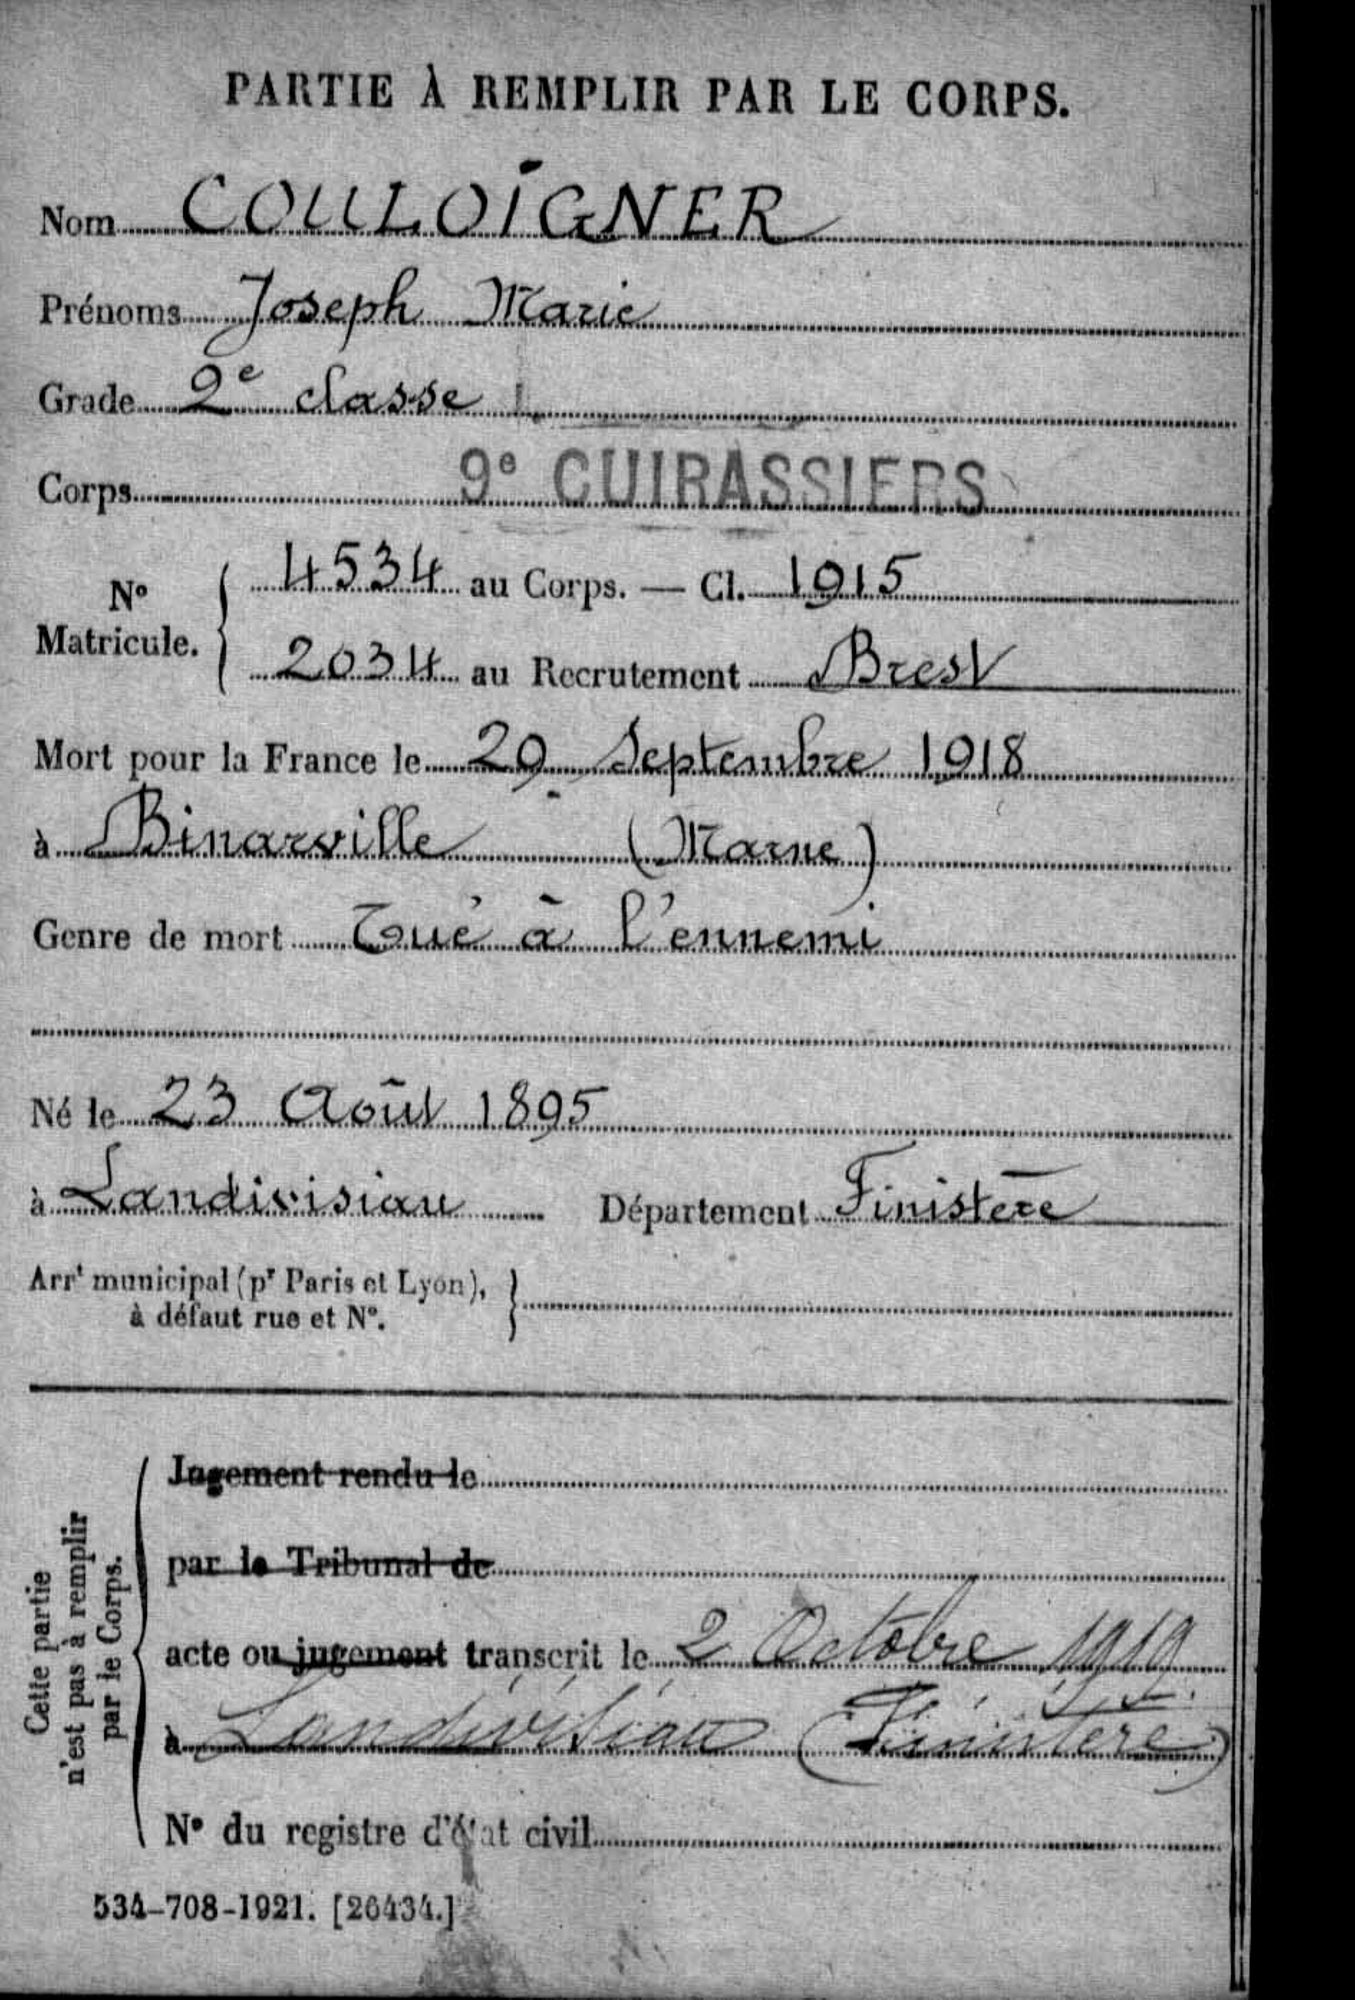 PARTIE À REMPLIR PAR LE CORPS.
Nom COULOIGNER
Prénoms Joseph Marie
Grade 2e classe
Corps 9e CUIRASSIERS
No Matricule. { 4534 au Corps. — Cl. 1915
2034 au Recrutement Brest
Mort pour la France le 29 Septembre 1918
à Binarville (Marne)
Genre de mort Tué à l'ennemi
Né le 23 Août 1895
à Landivisiau Département Finistère
Arrt municipal (pr Paris et Lyon), }
à défaut rue et No.
Cette partie
n'est pas à remplir
par le Corps.
Jugement rendu le
par le Tribunal de
acte ou jugement transcrit le 2 Octobre 1919
à Landivisiau (Finistère)
No du registre d'état civil
534-708-1921. [26434.]